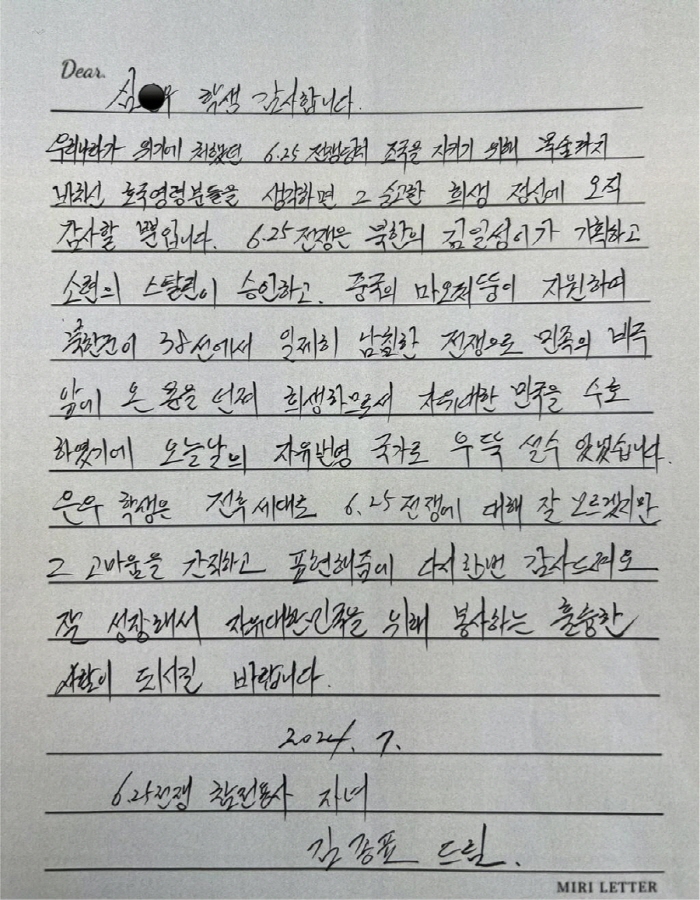 Dear.
심 우 학생 감사합니다.
우리나라가 위기에 처했던 6.25 전쟁터 조국을 지키기 위해 목숨까지
바치신 호국영령분들을 생각하면 그 숭고한 희생 정신에 오직
감사할 뿐입니다. 6.25전쟁은 북한의 김일성이가 기획하고
소련의 스탈린이 승인하고, 중국의 마오쩌뚱이 지원하여
북한군이 38선에서 일제히 남침한 전쟁으로 민족의 비극
앞에 온 몸을 던져 희생하므로서 자유대한 민국을 수호
하였기에 오늘날의 자유번영 국가로 우뚝 설수 있었습니다.
은우 학생은 전후세대로 6.25전쟁에 대해 잘 모르겠지만
그 고마움을 간직하고 표현해줌에 다시한번 감사드리며
잘 성장해서 자유대한민국을 위해 봉사하는 훌륭한
사람이 되시길 바랍니다.
2024. 7.
6.25전쟁 참전용사 자녀
김종표 드림.
MIRI LETTER